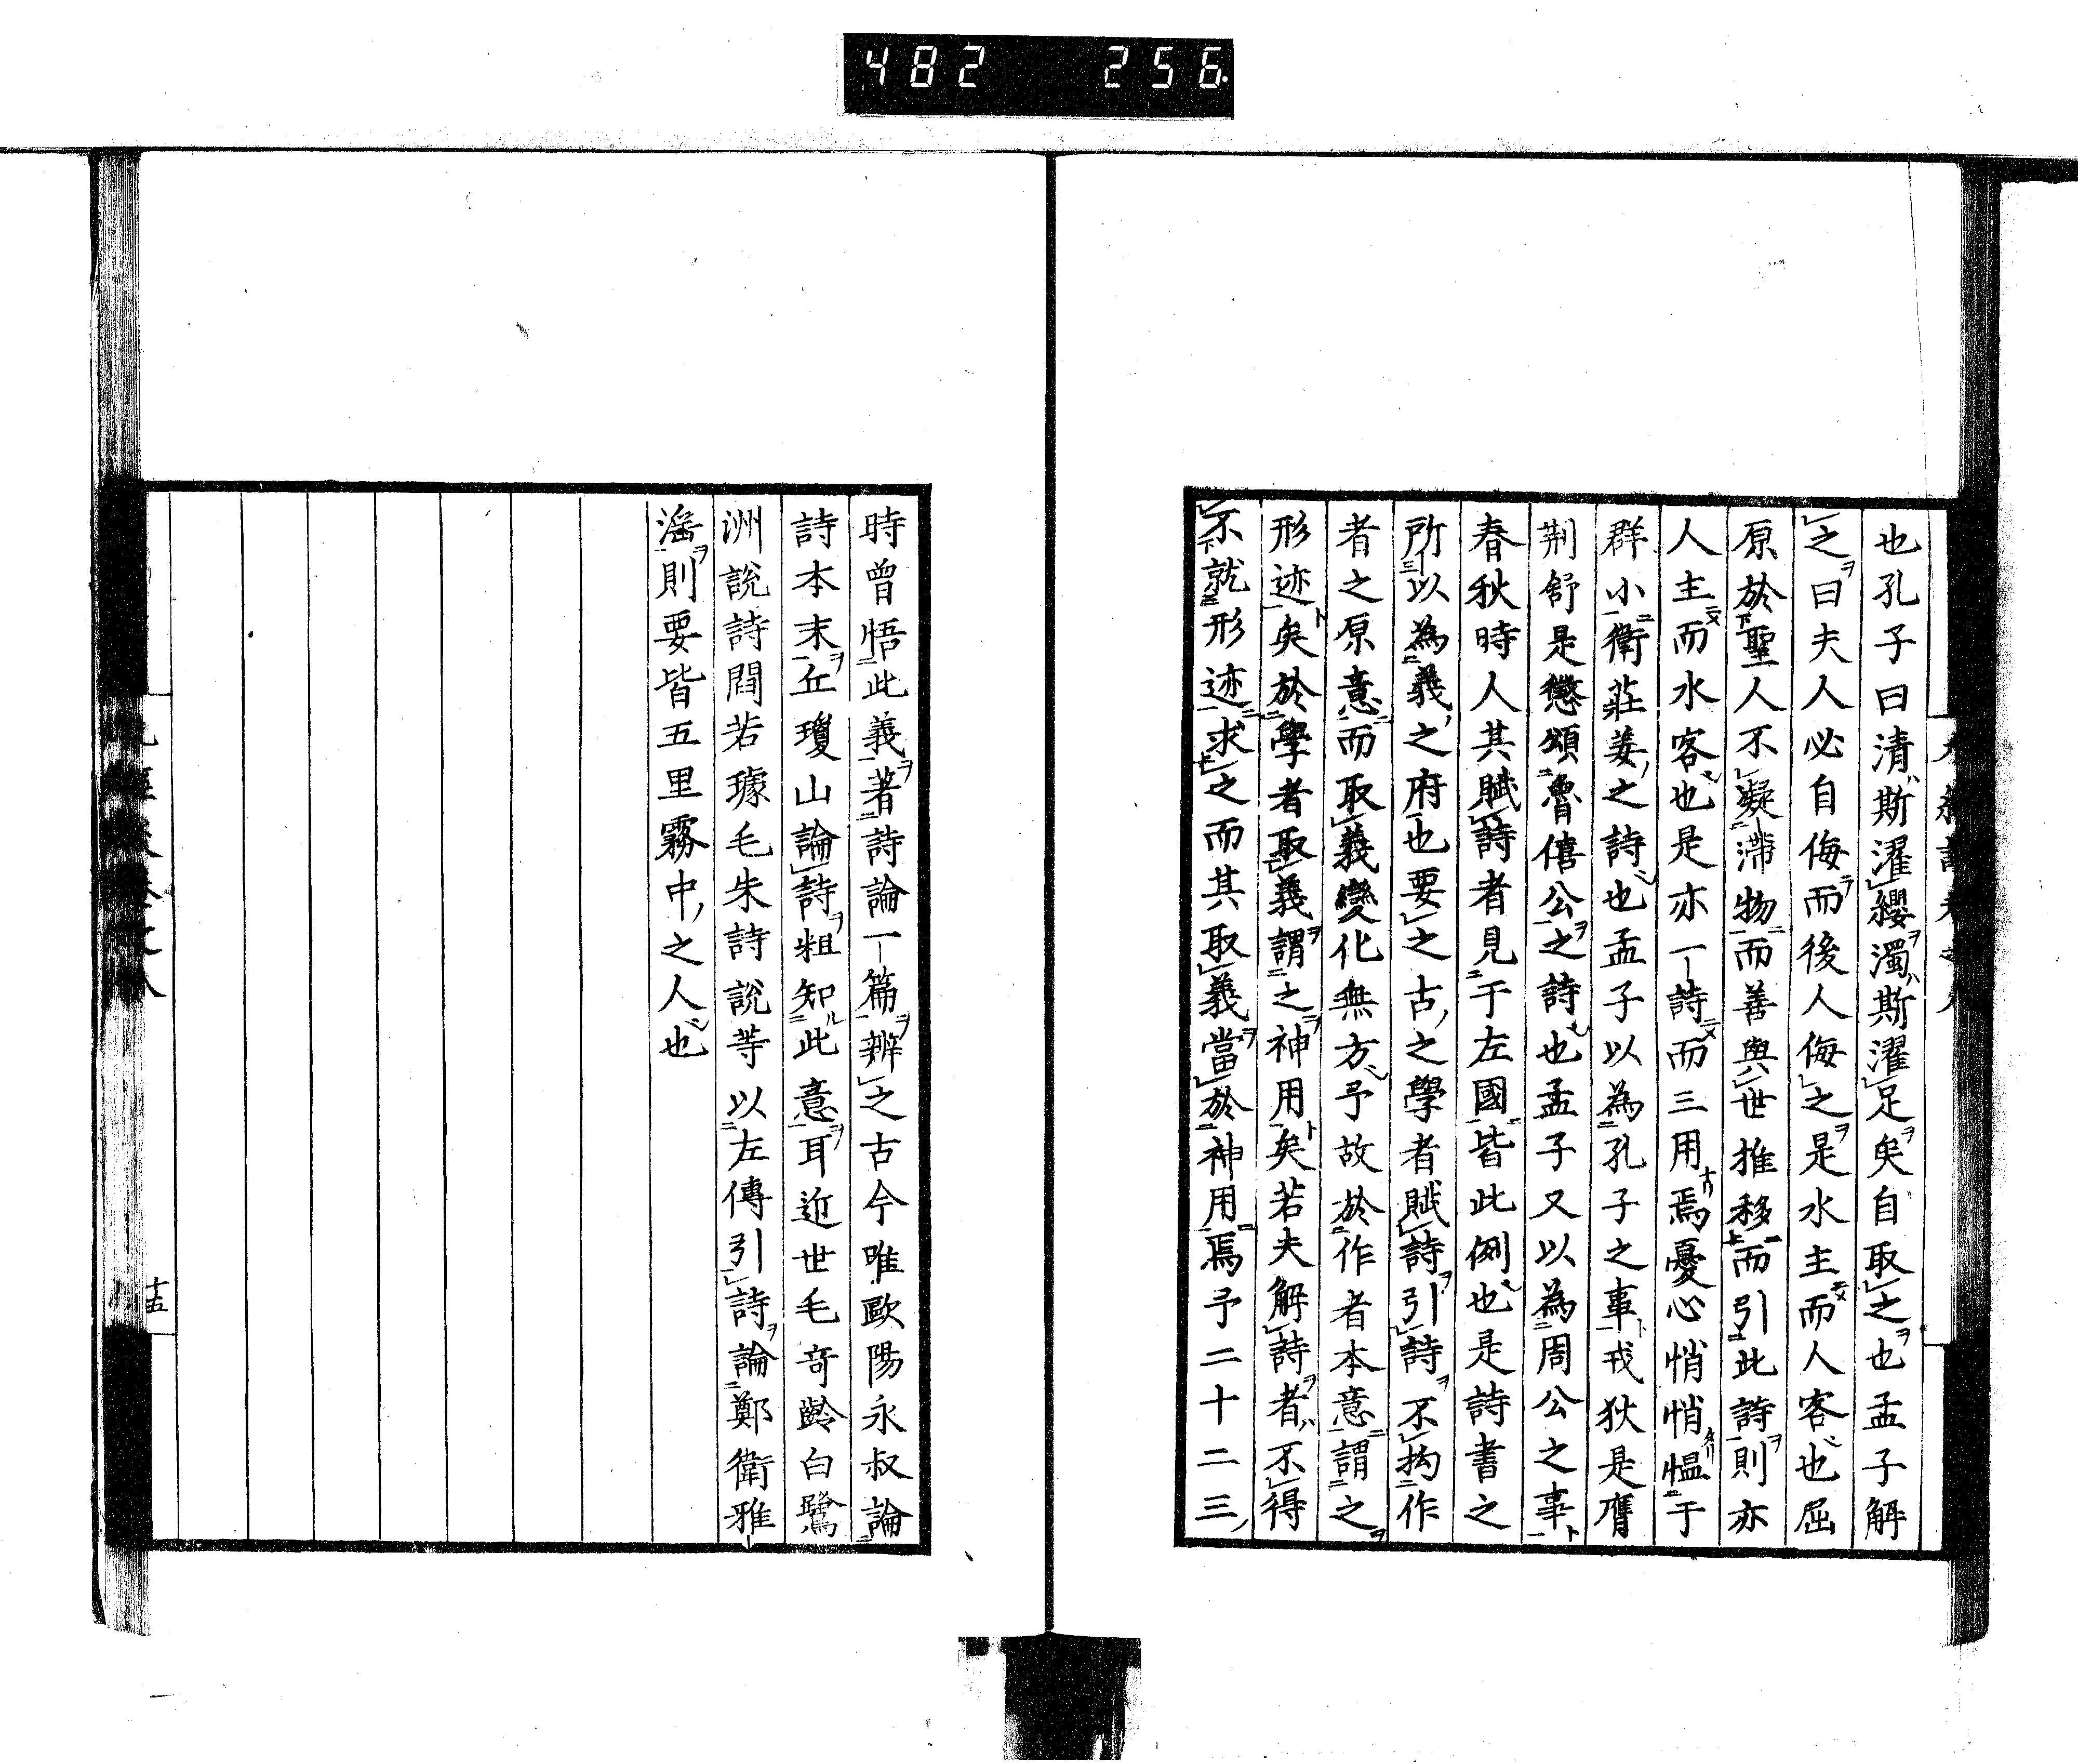 482 256
也孔子曰清斯濯纓濁斯濯足矣自取之也孟子解
之曰夫人必自侮而後人侮之是水主而人客也屈
原於聖人不凝滯物而善與世推移而引此詩則亦
人主而水客也是亦一詩而三用焉憂心悄悄慍于
群小衛莊姜之詩也孟子以為孔子之事戎狄是膺
荆舒是懲頌魯僖公之詩也孟子又以為周公之事
春秋時人其賦詩者見于左國皆此例也是詩書之
所以為義之府也要之古之學者賦詩引詩不拘作
者之原意而取義變化無方予故於作者本意謂之
形迹矣於學者取義謂之神用矣若夫解詩者不得
不就形迹求之而其取義當於神用焉予二十二三
時曾悟此義著詩論一篇辨之古今唯歐陽永叔論
詩本末丘瓊山論詩粗知此意耳近世毛奇齡白鷺
洲說詩閻若璩毛朱詩說等以左傳引詩論鄭衛雅
淫則要皆五里霧中之人也
十五